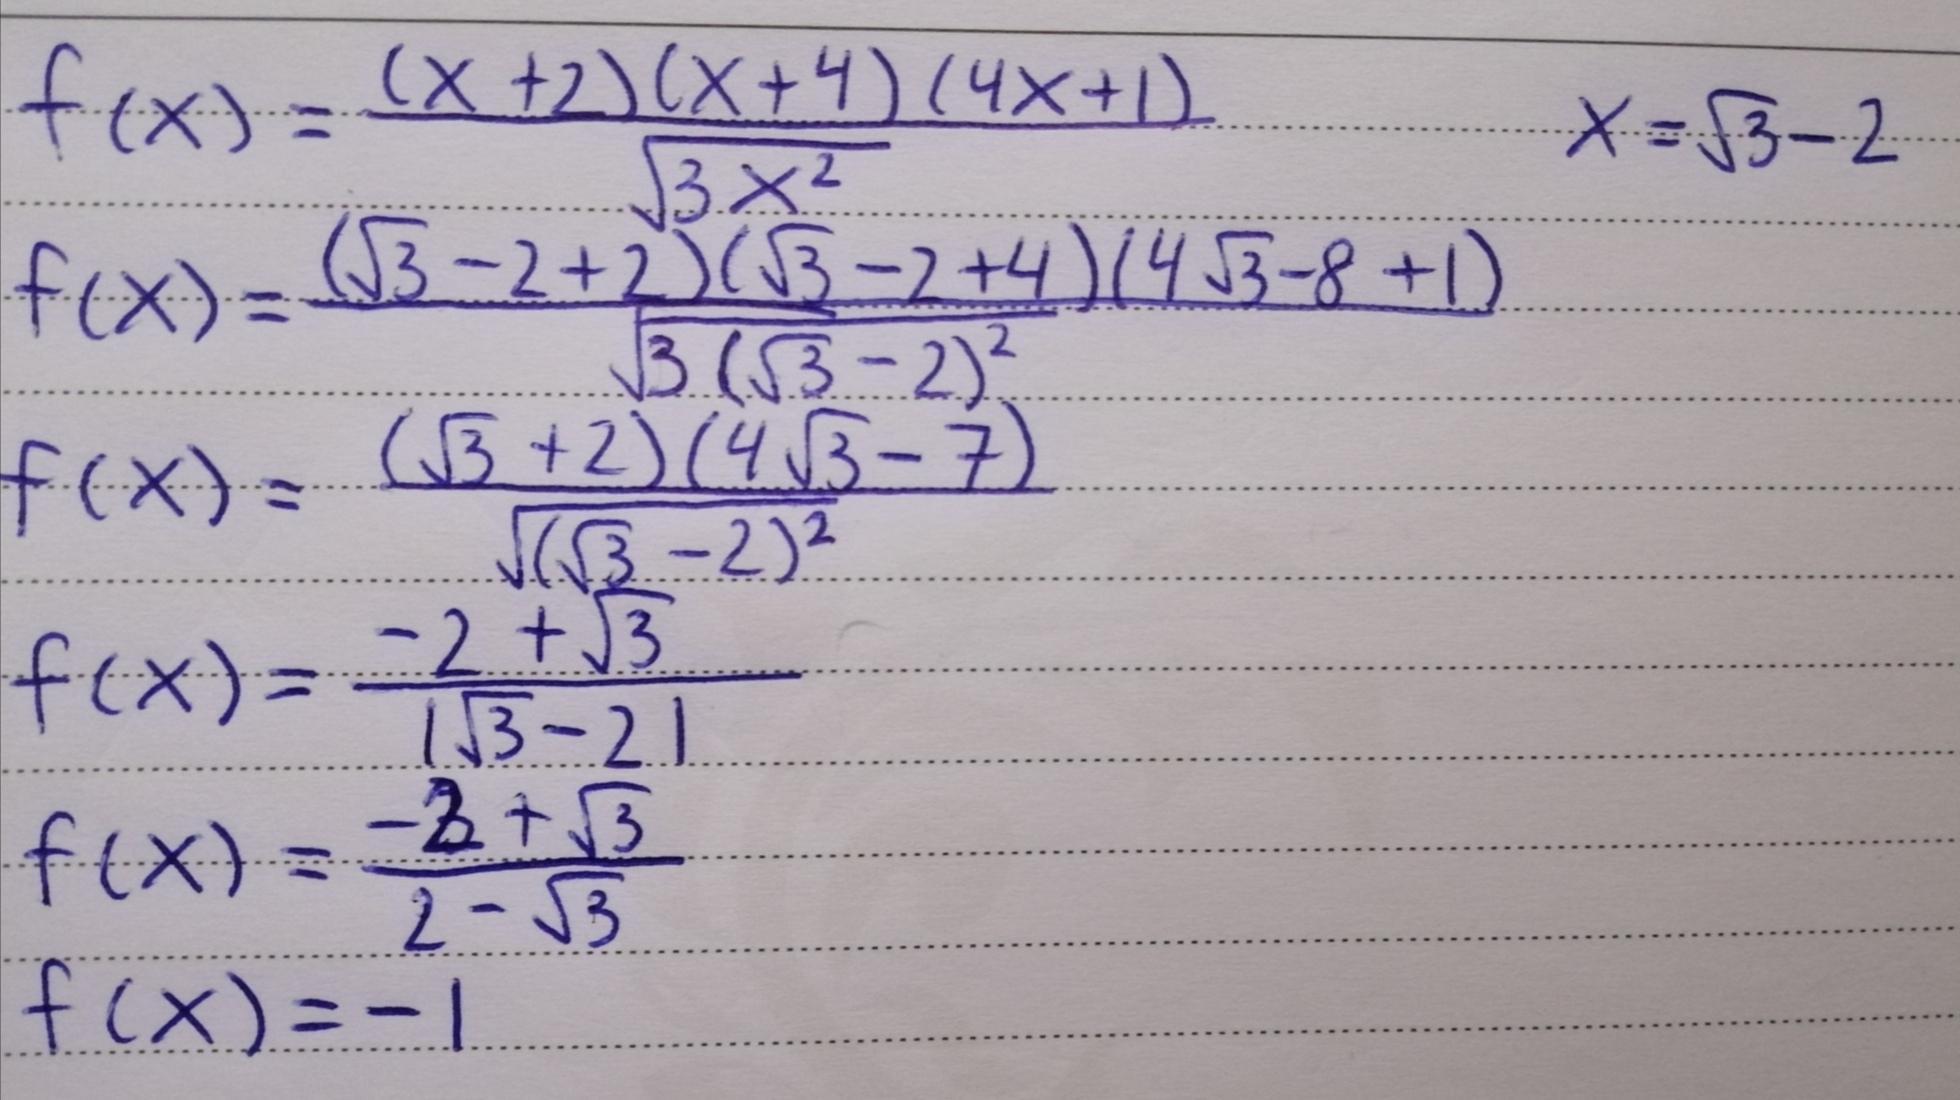 f(x) = (x+2)(x+4)(4x+1) / √(3x²)    x = √3 - 2
f(x) = (√3 - 2 + 2)(√3 - 2 + 4)(4√3 - 8 + 1) / √(3(√3 - 2)²)
f(x) = (√3 + 2)(4√3 - 7) / √((√3 - 2)²)
f(x) = -2 + √3 / |√3 - 2|
f(x) = -2 + √3 / 2 - √3
f(x) = -1